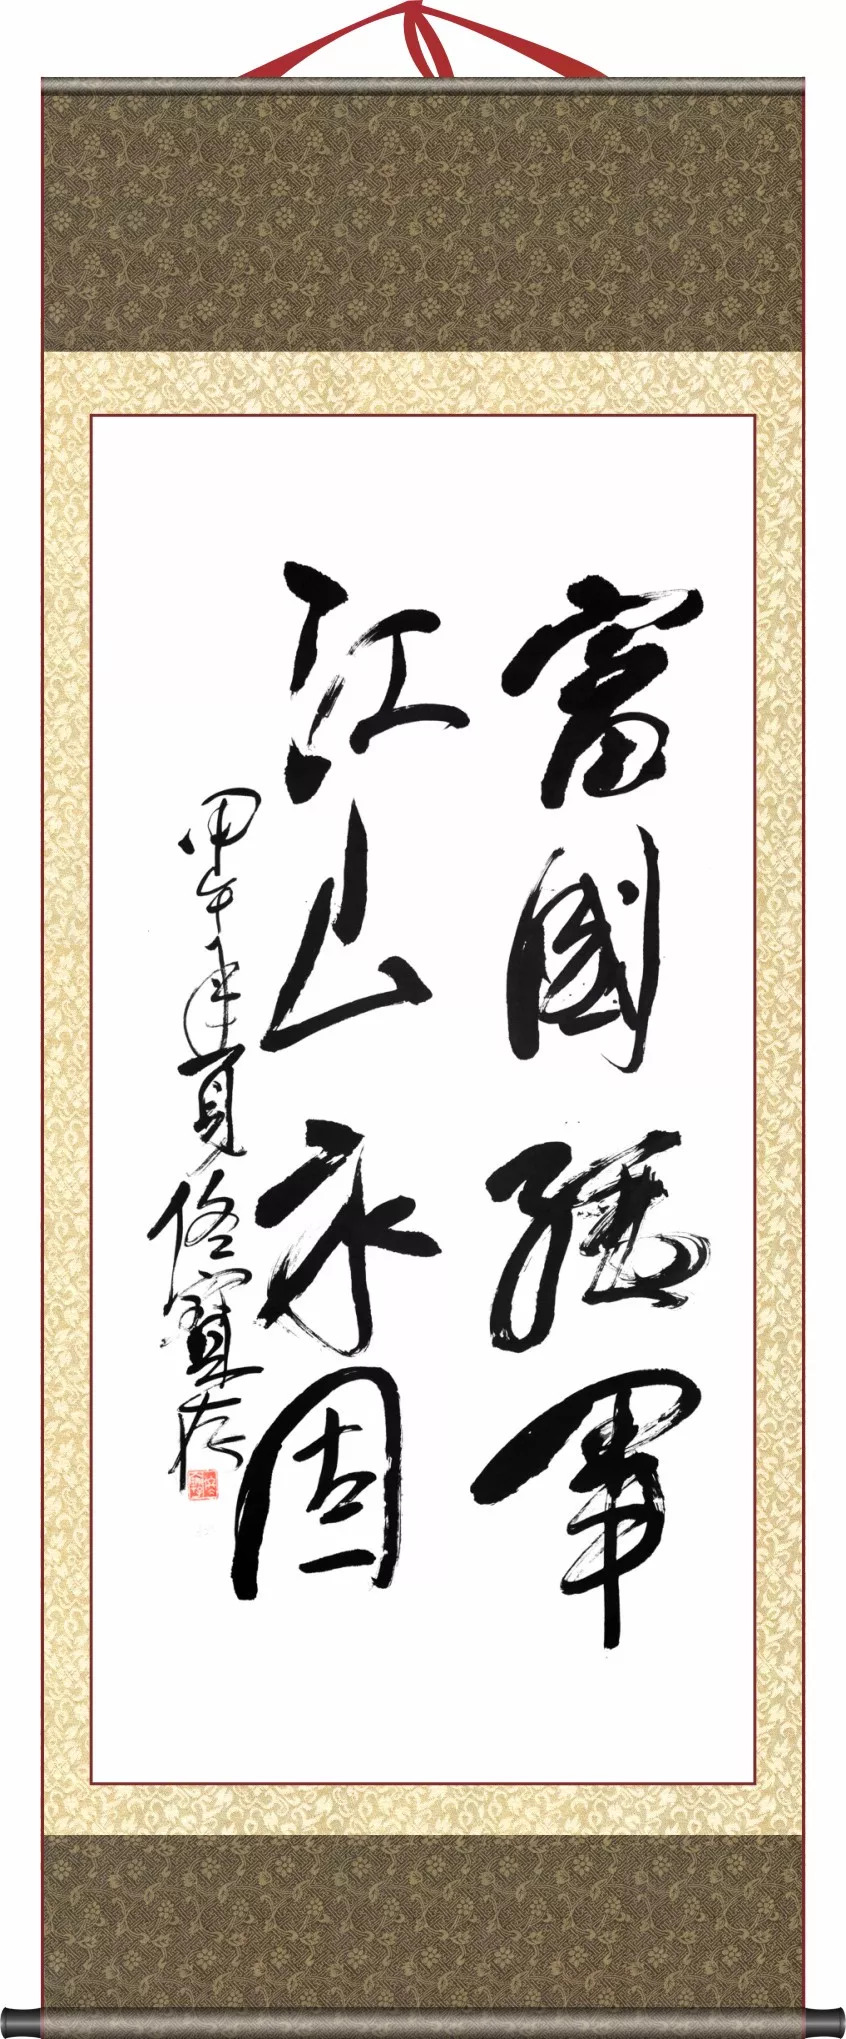 富國强軍
江山永固
甲午年夏佟寶存